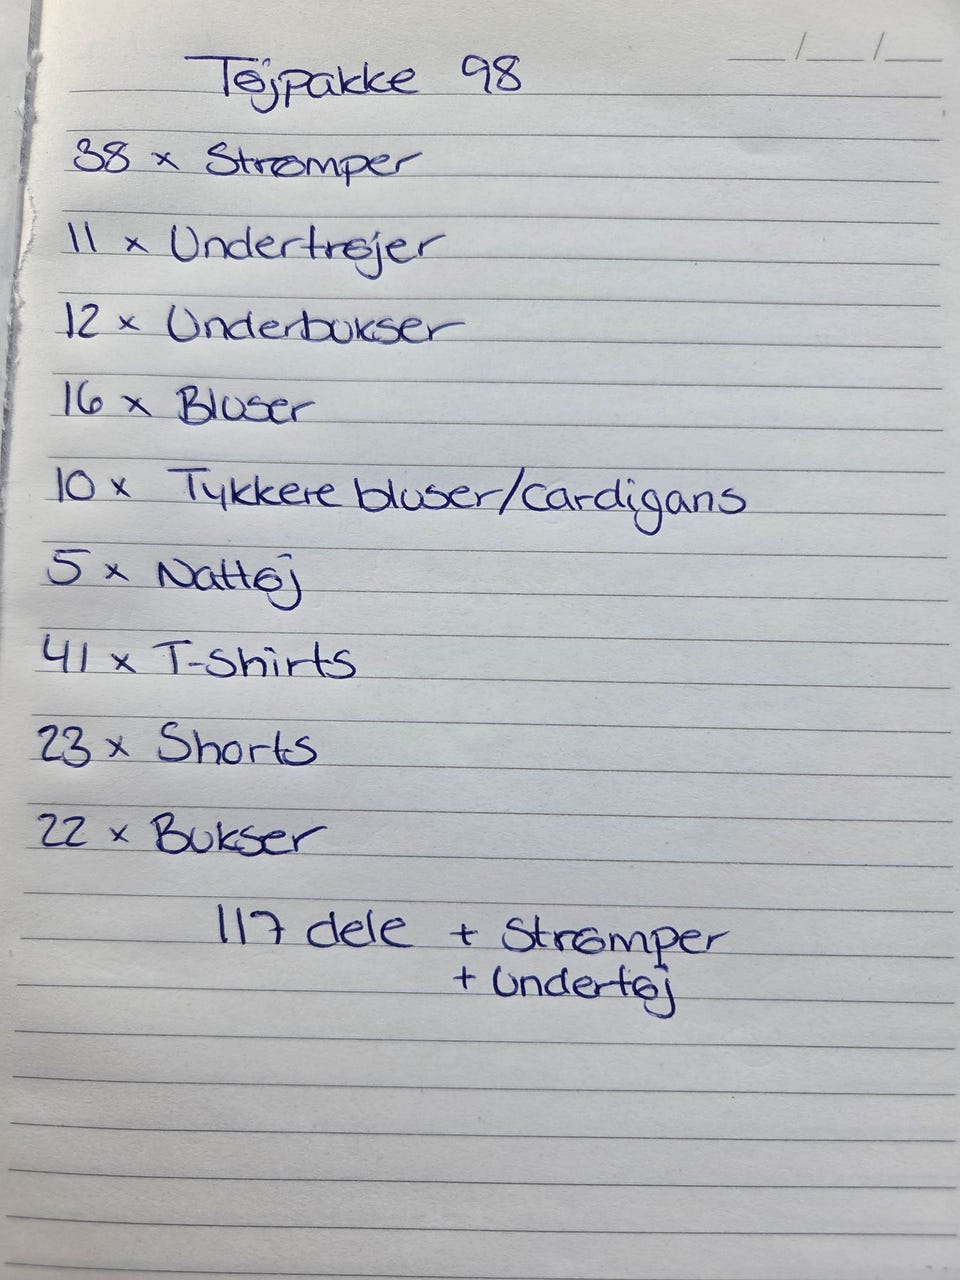 Tøjpakke 98
38 x Strømper
11 x Undertrøjer
12 x Underbukser
16 x Bluser
10 x Tykkere bluser/cardigans
5 x Nattøj
41 x T-shirts
23 x Shorts
22 x Bukser
117 dele + Strømper
+ Undertøj